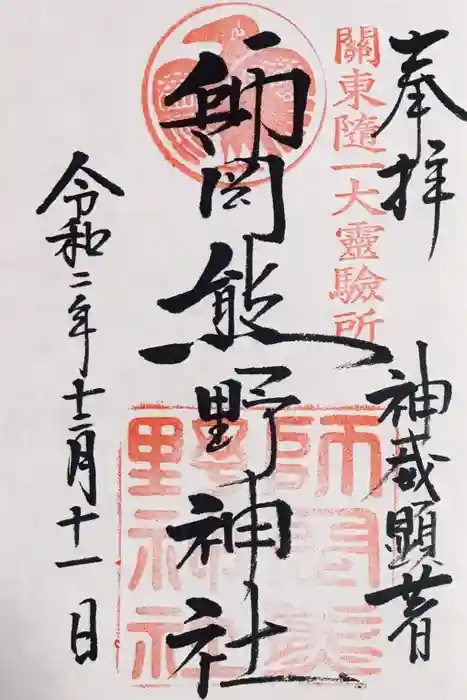 奉拝
神威顕著
關東隨一大靈驗所
師岡熊野神社
師岡熊野神社
令和二年十二月十一日